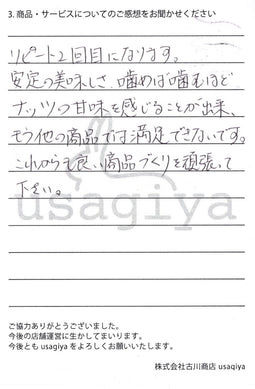 3. 商品・サービスについてのご感想をお聞かせください
リピート2回目になります。
安定の美味しさ、噛めば噛むほど
ナッツの甘味を感じることが出来、
もう他の商品では満足できないです。
これからも良い商品づくりを頑張って
下さい。
usagiya
ご協力ありがとうございました。
今後の店舗運営に生かしてまいります。
今後とも usagiya をよろしくお願いいたします。
株式会社古川商店 usagiya